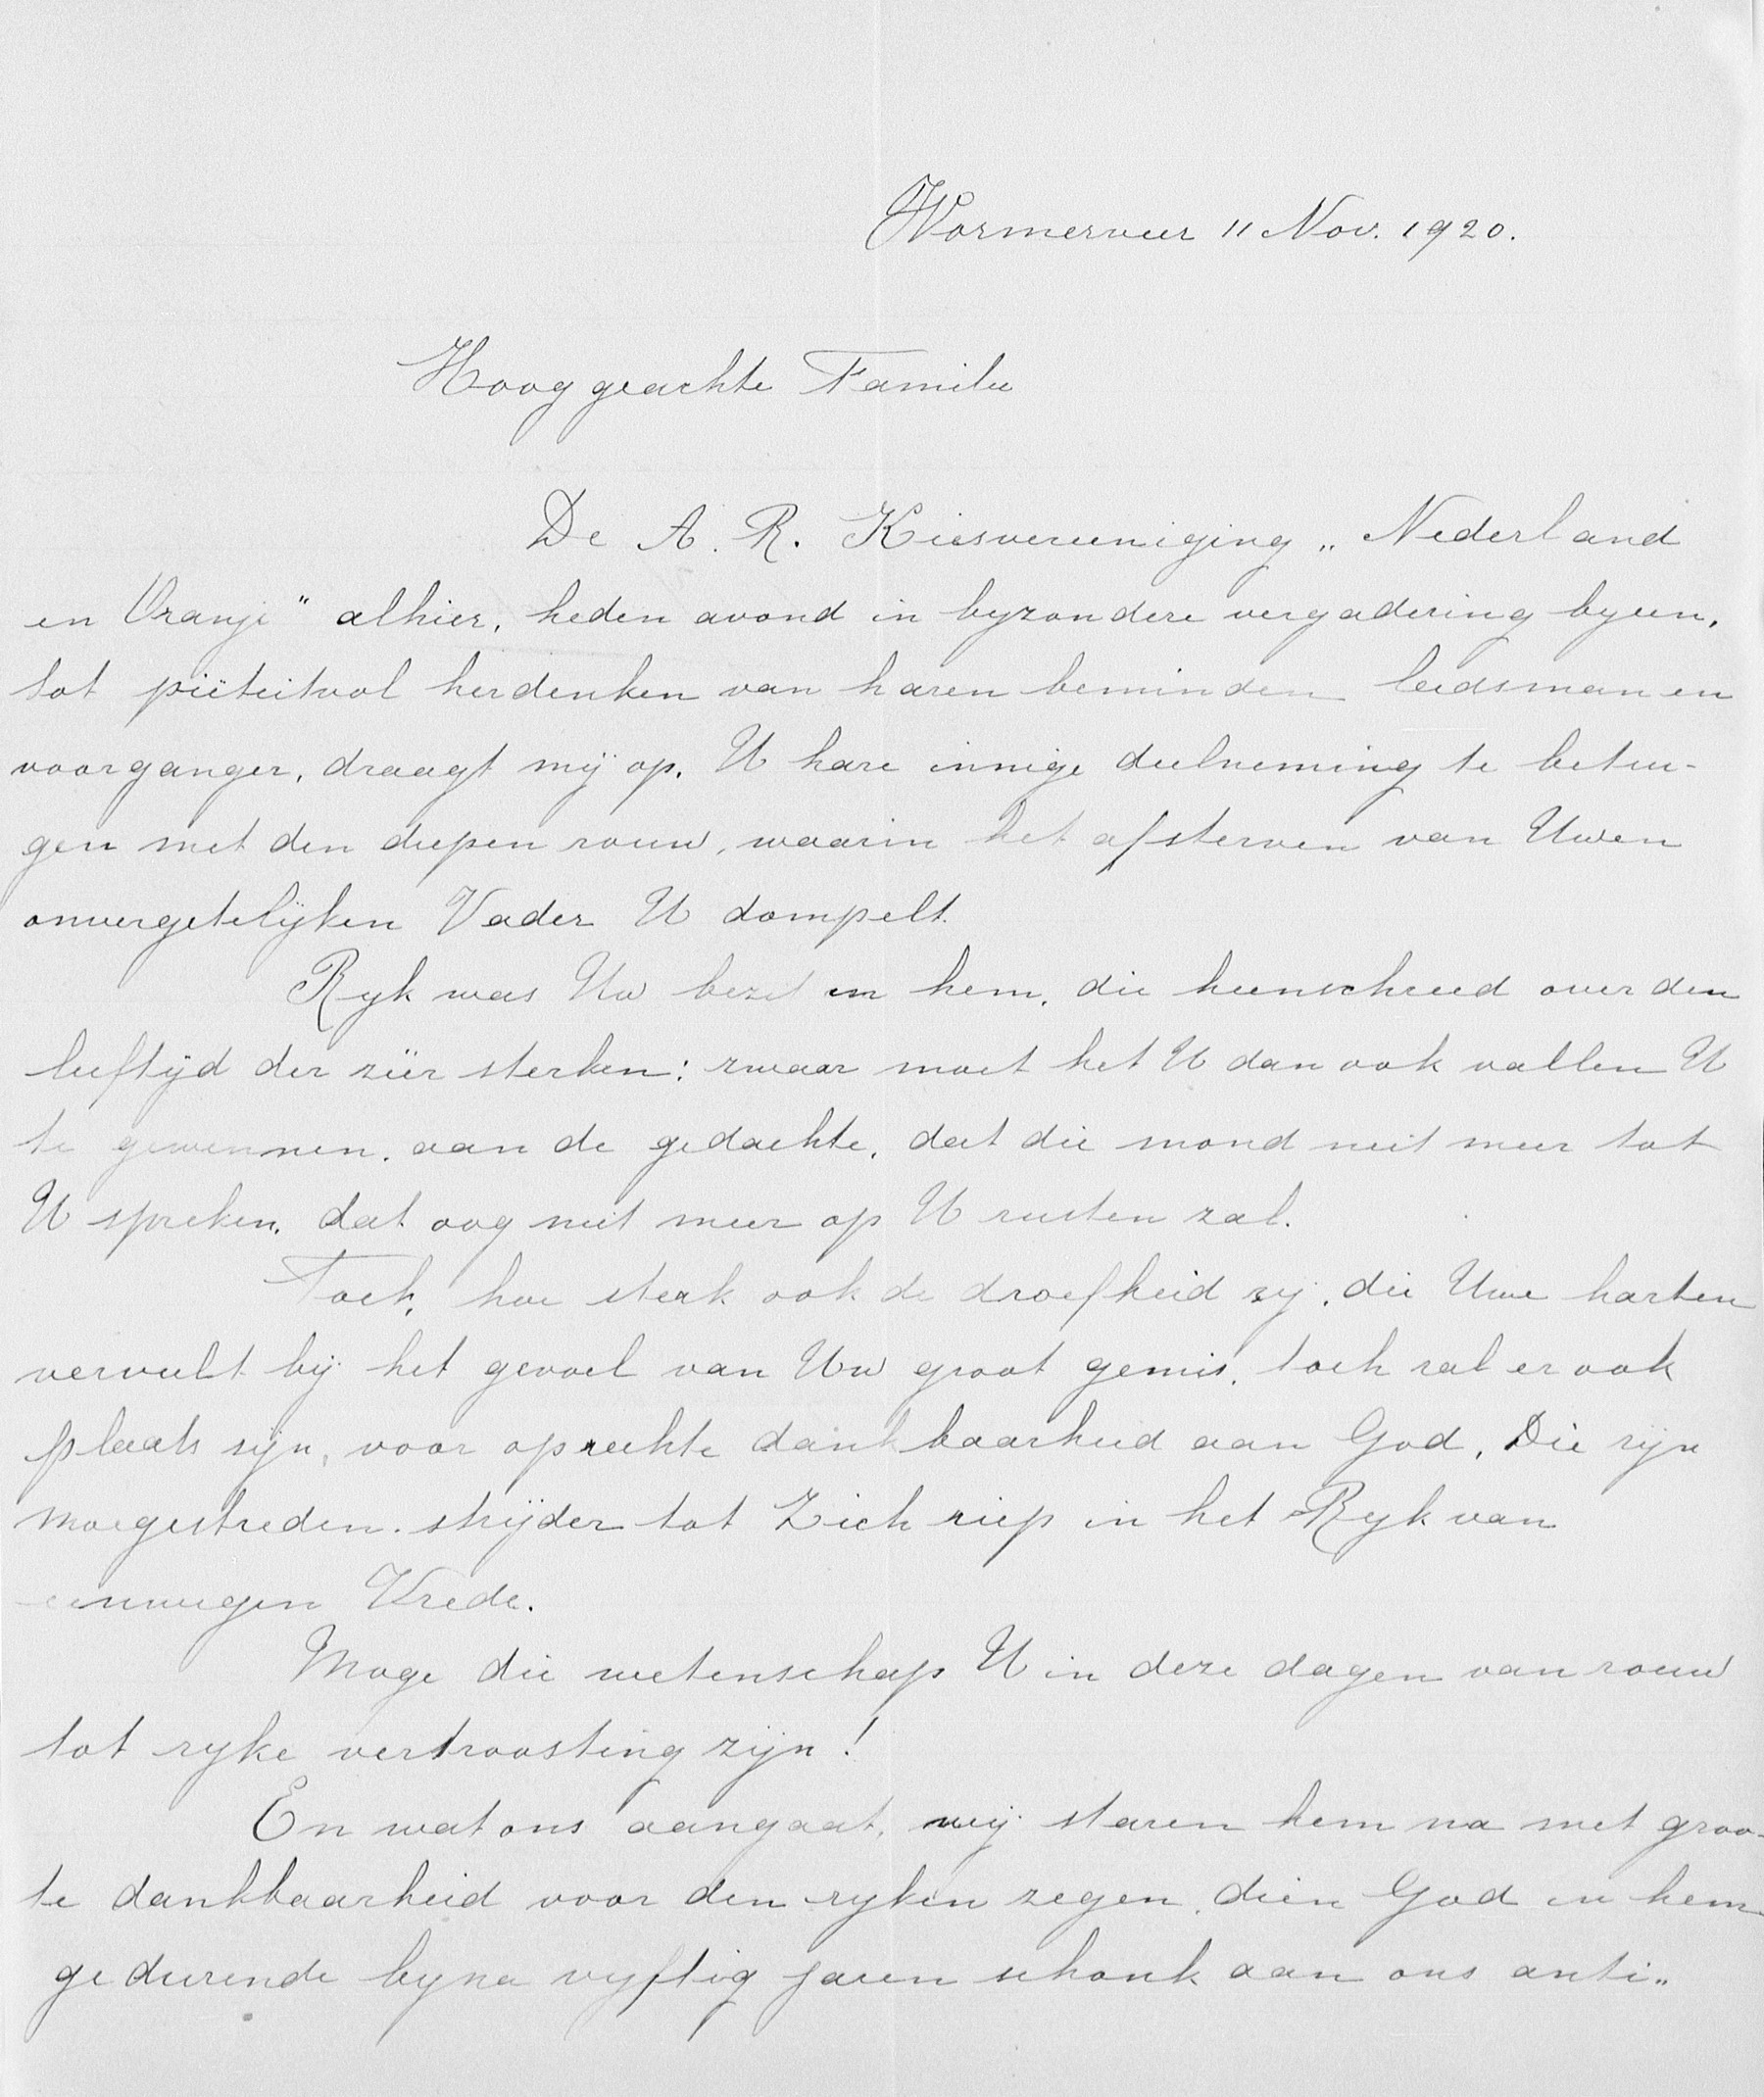 Wormerveer 11 Nov. 1920.
Hooggeachte Familie
De A. R. Kiesvereeniging „Nederland
en Oranje" alhier, heden avond in byzondere vergadering byeen,
tot piëteitvol herdenken van haren beminden leidsman en
voorganger, draagt mij op, U hare innige deelneming te betui-
gen met den diepen rouw, waarin het afsterven van Uwen
onvergetelijken Vader U dompelt.
Ryk was Uw bezit in hem, die heenschreed over den
leeftijd der zéér sterken: zwaar moet het U dan ook vallen U
te gewennen, aan de gedachte, dat die mond niet meer tot
U spreken, dat oog niet meer op U rusten zal.
Toch, hoe sterk ook de droefheid zy, die Uwe harten
vervult bij het gevoel van Uw groot gemis, toch zal er ook
plaats zijn, voor oprechte dankbaarheid aan God, Die zijn
moegestreden strijder tot Zich riep in het Ryk van
eeuwigen Vrede.
Moge die wetenschap U in deze dagen van rouw
tot ryke vertroosting zijn!
En wat ons aangaat, wij staren hem na met groo-
te dankbaarheid voor den ryken zegen, dien God in hem
gedurende byna vyftig jaren schonk aan ons anti„